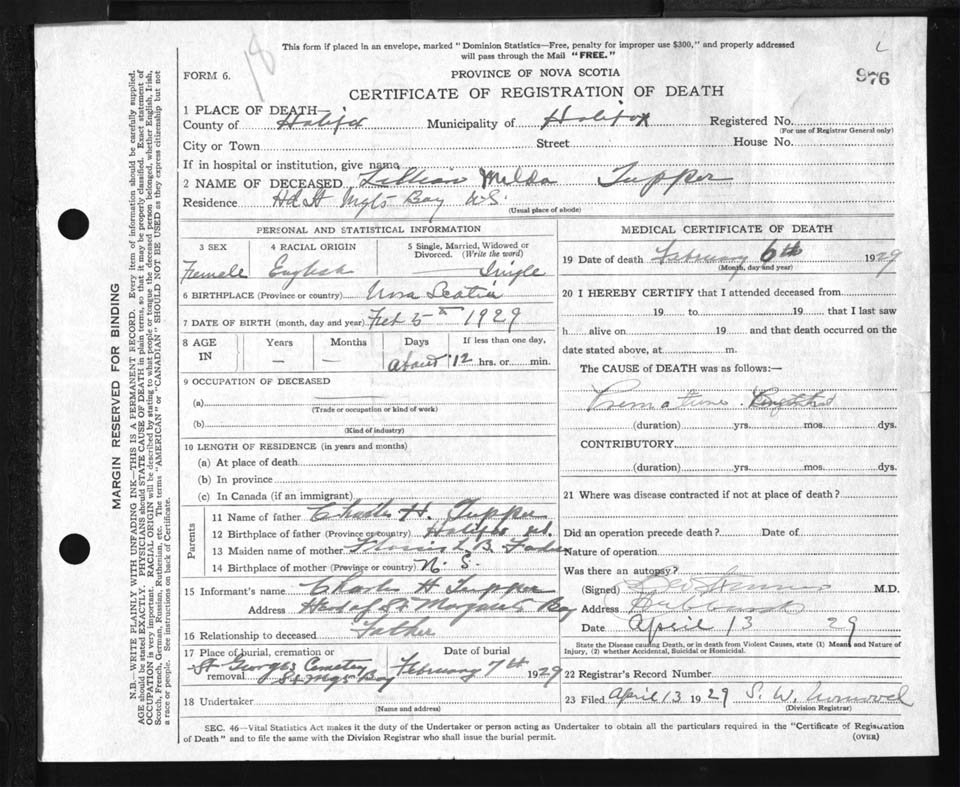 18
This form if placed in an envelope, marked "Dominion Statistics—Free, penalty for improper use $300," and properly addressed
will pass through the Mail "FREE."
L
976
FORM 6.
PROVINCE OF NOVA SCOTIA
CERTIFICATE OF REGISTRATION OF DEATH
1 PLACE OF DEATH—
County of Halifax Municipality of Halifax Registered No.
(For use of Registrar General only)
City or Town Street House No.
If in hospital or institution, give name
2 NAME OF DECEASED Lillian Melda Tupper
Residence Hd St Mgts Bay N.S.
(Usual place of abode)
PERSONAL AND STATISTICAL INFORMATION
3 SEX 4 RACIAL ORIGIN 5 Single, Married, Widowed or
Divorced. (Write the word)
Female English Single
6 BIRTHPLACE (Province or country) Nova Scotia
7 DATE OF BIRTH (month, day and year) Feb 5th 1929
8 AGE IN Years Months Days If less than one day,
— — About 12 hrs. or min.
9 OCCUPATION OF DECEASED
(a)
(Trade or occupation or kind of work)
(b)
(Kind of industry)
10 LENGTH OF RESIDENCE (in years and months)
(a) At place of death
(b) In province
(c) In Canada (if an immigrant)
Parents
11 Name of father Charles H. Tupper
12 Birthplace of father (Province or country) Halifax
13 Maiden name of mother B. Fader
14 Birthplace of mother (Province or country) N. S.
15 Informant's name Charles H Tupper
Address Head of St Margarets Bay
16 Relationship to deceased Father
17 Place of burial, cremation or removal Date of burial
St Georges Cemetery February 7th 1929
St Mgs Bay
18 Undertaker
(Name and address)
MEDICAL CERTIFICATE OF DEATH
19 Date of death February 6th 1929
(Month, day and year)
20 I HEREBY CERTIFY that I attended deceased from
19 to 19 that I last saw
h alive on 19 and that death occurred on the
date stated above, at m.
The CAUSE of DEATH was as follows:—
Premature
(duration) yrs. mos. dys.
CONTRIBUTORY
(duration) yrs. mos. dys.
21 Where was disease contracted if not at place of death?
Did an operation precede death? Date of
Nature of operation
Was there an autopsy?
(Signed) M.D.
Address Hubbards
Date April 13 29
State the Disease causing Death, or in death from Violent Causes, state (1) Means and Nature of
Injury, (2) whether Accidental, Suicidal or Homicidal.
22 Registrar's Record Number
23 Filed April 13 1929 S. W.
(Division Registrar)
SEC. 46—Vital Statistics Act makes it the duty of the Undertaker or person acting as Undertaker to obtain all the particulars required in the "Certificate of Registration
of Death" and to file the same with the Division Registrar who shall issue the burial permit.
(OVER)
MARGIN RESERVED FOR BINDING
N.B.—WRITE PLAINLY WITH UNFADING INK—THIS IS A PERMANENT RECORD. Every item of information should be carefully supplied.
AGE should be stated EXACTLY. PHYSICIANS should STATE CAUSE OF DEATH in plain terms, so that it may be properly classified. Exact statement of
OCCUPATION is very important. RACIAL ORIGIN will be described by stating to what people or tongue the deceased person belonged, whether English, Irish,
Scotch, French, German, Russian, Ruthenian, etc. The terms "AMERICAN" or "CANADIAN" SHOULD NOT BE USED as they express citizenship but not
a race or people. See instructions on back of Certificate.